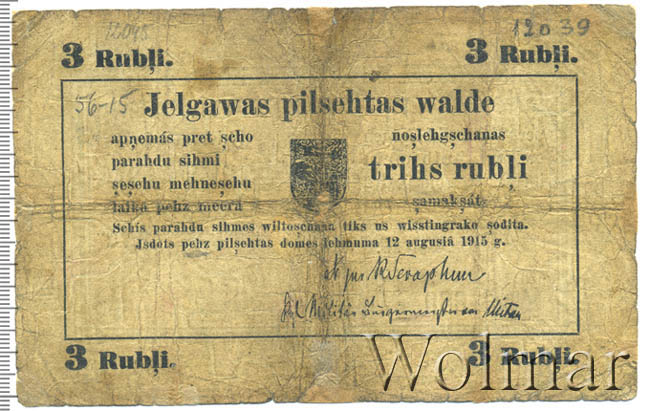 12039
3 Rubļi. 3 Rubļi.
56-15
Jelgawas pilsehtas walde
apņemás pret scho noslehgschanas
parahdu sihmi trihs rubļi
seschu mehneschu samaksát
laikà pehz meera
Schis parahdu sihmes wiltoschana tiks us wisstingrako sodita.
Isdots pehz pilsehtas domes lehmuma 12 augusiâ 1915 g.
Militär Bürgermeister von Mitau
3 Rubļi. 3 Rubļi.
Wolmar